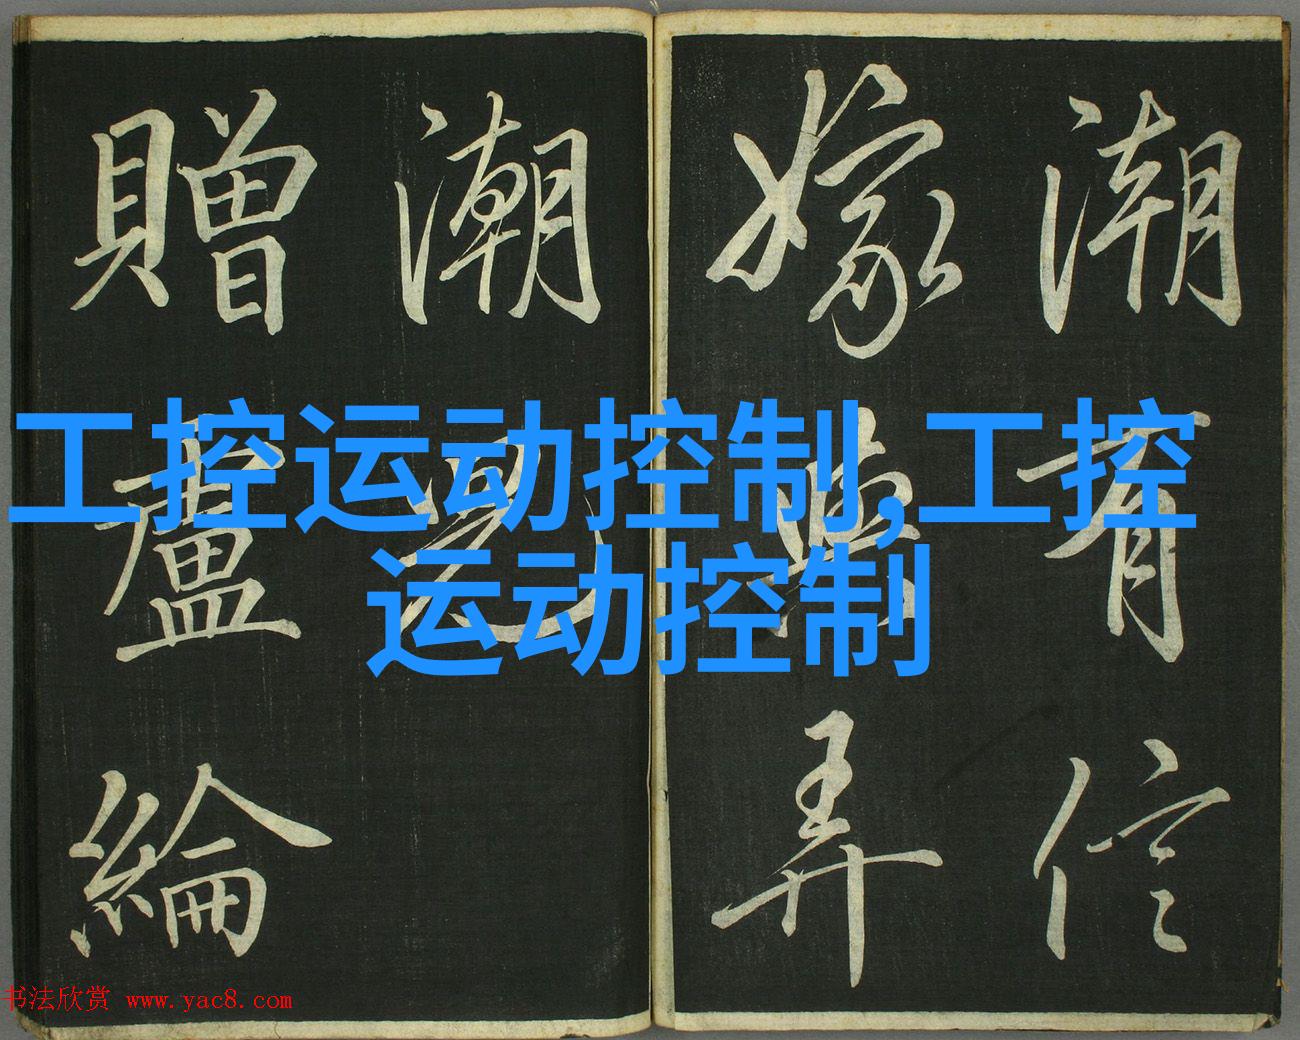 潮有信
嫁與弄
潮兒
贈盧綸
工控运动控制,工控
运动控制
书法欣赏 www.yac8.com